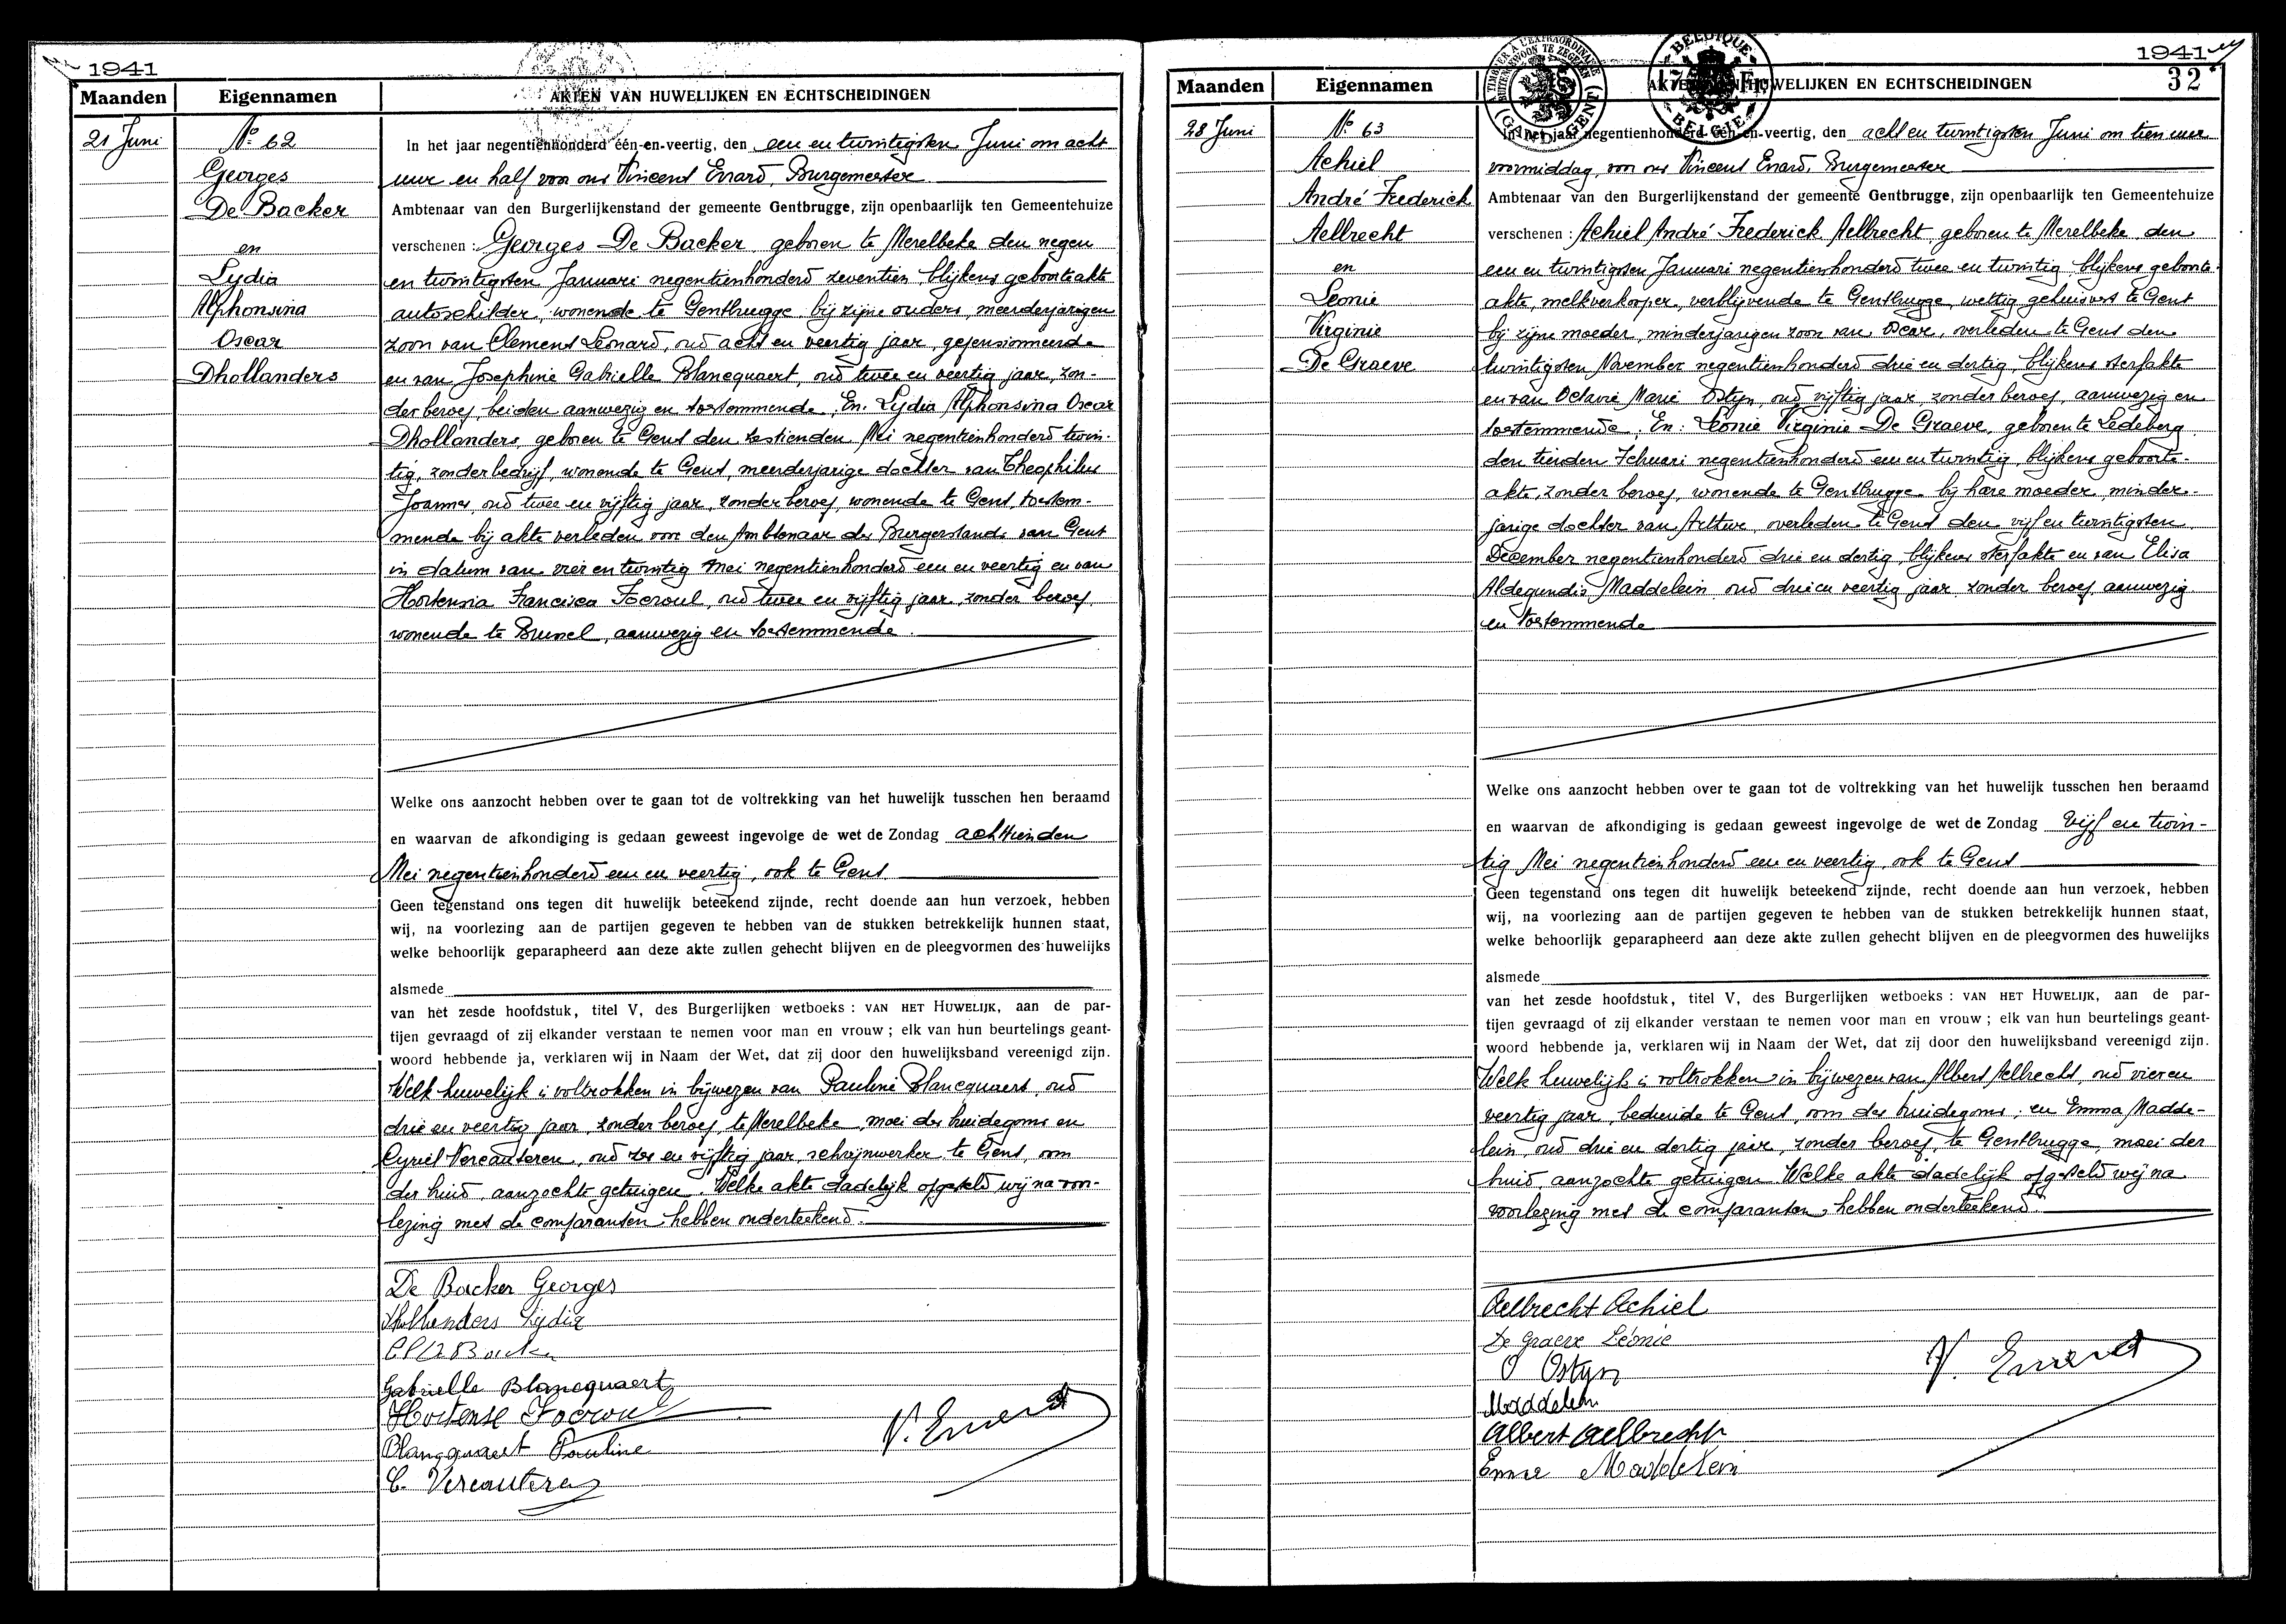 1941
Maanden
Eigennamen
AKTEN VAN HUWELIJKEN EN ECHTSCHEIDINGEN
21 Juni
No 62
Georges
De Backer
en
Lydia
Alphonsina
Oscar
Dhollanders
In het jaar negentienhonderd één-en-veertig, den een en twintigsten Juni om acht
uur en half voor ons Vincent Errard, Burgemeester
Ambtenaar van den Burgerlijkenstand der gemeente Gentbrugge, zijn openbaarlijk ten Gemeentehuize
verschenen : Georges De Backer, geboren te Merelbeke den negen
en twintigsten Januari negentienhonderd zeventien, blijkens geboorteakte
autoschilder, wonende te Gentbrugge bij zijne ouders, meerderjarigen
zoon van Clement Léonard, oud acht en veertig jaar, gepensionneerde
en van Josephine Gabrielle Blancquaert, oud twee en veertig jaar, zon-
der beroep, beiden aanwezig en toestemmende. En: Lydia Alphonsina Oscar
Dhollanders, geboren te Gent den zestienden Mei negentienhonderd twin-
tig, zonder bedrijf, wonende te Gent, meerderjarige dochter van Theophilus
Joannes, oud twee en vijftig jaar, zonder beroep, wonende te Gent, toestem-
mende bij akte verleden voor den Ambtenaar des Burgerstands van Gent
in datum van vier en twintig Mei negentienhonderd een en veertig en van
Hortensia Francisca Focroul, oud twee en vijftig jaar, zonder beroep,
wonende te Brussel, aanwezig en toestemmende.
Welke ons aanzocht hebben over te gaan tot de voltrekking van het huwelijk tusschen hen beraamd
en waarvan de afkondiging is gedaan geweest ingevolge de wet de Zondag achttienden
Mei negentienhonderd een en veertig, ook te Gent
Geen tegenstand ons tegen dit huwelijk beteekend zijnde, recht doende aan hun verzoek, hebben
wij, na voorlezing aan de partijen gegeven te hebben van de stukken betrekkelijk hunnen staat,
welke behoorlijk geparapheerd aan deze akte zullen gehecht blijven en de pleegvormen des huwelijks
alsmede
van het zesde hoofdstuk, titel V, des Burgerlijken wetboeks : VAN HET HUWELIJK, aan de par-
tijen gevraagd of zij elkander verstaan te nemen voor man en vrouw ; elk van hun beurtelings geant-
woord hebbende ja, verklaren wij in Naam der Wet, dat zij door den huwelijksband vereenigd zijn.
Welk huwelijk is voltrokken in bijwezen van Pauline Blancquaert, oud
drie en veertig jaar, zonder beroep, te Merelbeke, moei des bruidegoms en
Cyriel Vercauteren, oud zes en vijftig jaar, schrijnwerker, te Gent, oom
der bruid, aanzochte getuigen. Welke akte dadelijk opgesteld, wij na voor-
lezing met de comparanten hebben onderteekend.
De Backer Georges
Dhollanders Lydia
Gabrielle Blancquaert
Hortense Focroul
Blancquaert Pauline
C. Vercauteren
V. Errard
1941
32
Maanden
Eigennamen
AKTEN VAN HUWELIJKEN EN ECHTSCHEIDINGEN
BELGIQUE
BELGIE
28 Juni
No 63
Achiel
André Frederick
Aelbrecht
en
Leonie
Virginie
De Graeve
In het jaar negentienhonderd één-en-veertig, den acht en twintigsten Juni om tien uur
voormiddag, voor ons Vincent Errard, Burgemeester
Ambtenaar van den Burgerlijkenstand der gemeente Gentbrugge, zijn openbaarlijk ten Gemeentehuize
verschenen : Achiel André Frederick Aelbrecht, geboren te Merelbeke den
een en twintigsten Januari negentienhonderd twee en twintig, blijkens geboorte-
akte, melkverkooper, verblijvende te Gentbrugge, wettig gehuisvest te Gent
bij zijne moeder, minderjarigen zoon van Oscar, overleden te Gent den
twintigsten November negentienhonderd drie en dertig, blijkens sterfakte
en van Octavie Marie Ostyn, oud vijftig jaar, zonder beroep, aanwezig en
toestemmende; En: Leonie Virginie De Graeve, geboren te Ledeberg
den tienden Februari negentienhonderd een en twintig, blijkens geboorte-
akte, zonder beroep, wonende te Gentbrugge bij hare moeder, minder-
jarige dochter van Arthur, overleden te Gent den vijf en twintigsten
December negentienhonderd drie en dertig, blijkens sterfakte en van Elisa
Aldegundis Maddelein oud drie en veertig jaar zonder beroep, aanwezig
en toestemmende
Welke ons aanzocht hebben over te gaan tot de voltrekking van het huwelijk tusschen hen beraamd
en waarvan de afkondiging is gedaan geweest ingevolge de wet de Zondag vijf en twin-
tig Mei negentienhonderd een en veertig, ook te Gent
Geen tegenstand ons tegen dit huwelijk beteekend zijnde, recht doende aan hun verzoek, hebben
wij, na voorlezing aan de partijen gegeven te hebben van de stukken betrekkelijk hunnen staat,
welke behoorlijk geparapheerd aan deze akte zullen gehecht blijven en de pleegvormen des huwelijks
alsmede
van het zesde hoofdstuk, titel V, des Burgerlijken wetboeks : VAN HET HUWELIJK, aan de par-
tijen gevraagd of zij elkander verstaan te nemen voor man en vrouw ; elk van hun beurtelings geant-
woord hebbende ja, verklaren wij in Naam der Wet, dat zij door den huwelijksband vereenigd zijn.
Welk huwelijk is voltrokken in bijwezen van Albert Aelbrecht, oud vier en
veertig jaar, bediende te Gent, oom des bruidegoms; en Emma Madde-
lein, oud drie en dertig jaar, zonder beroep, te Gentbrugge, moei der
bruid, aanzochte getuigen. Welke akte dadelijk opgesteld wij na
voorlezing met de comparanten, hebben onderteekend.
Aelbrecht Achiel
De Graeve Léonie
O Ostyn
Maddelein
Albert Aelbrecht
Emma Maddelein
V. Errard